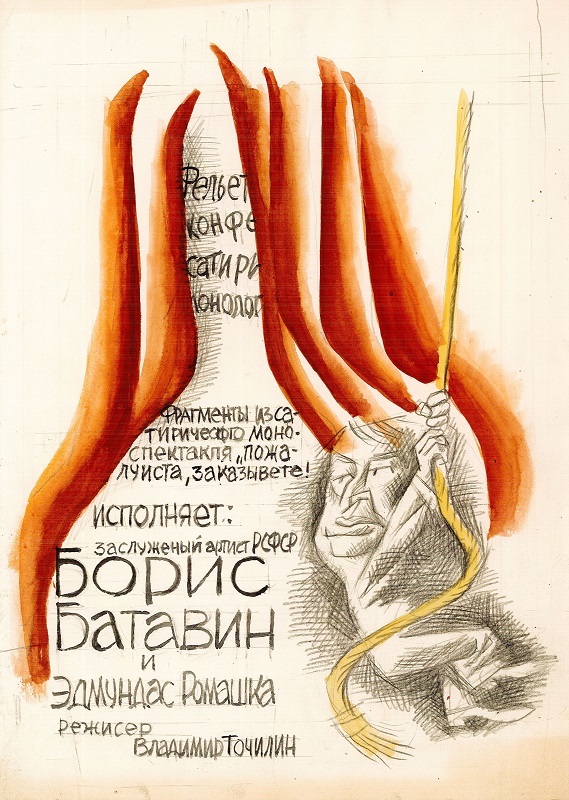 Рельет
конфе
сатири
монолог
Фрагменты из са-
тирического моно-
спектакля „пожа-
луиста, заказывете!
исполняет:
заслуженый артист РСФСР
Борис
Батавин
и
Эдмундас Ромашка
режисер
Владимир Точилин